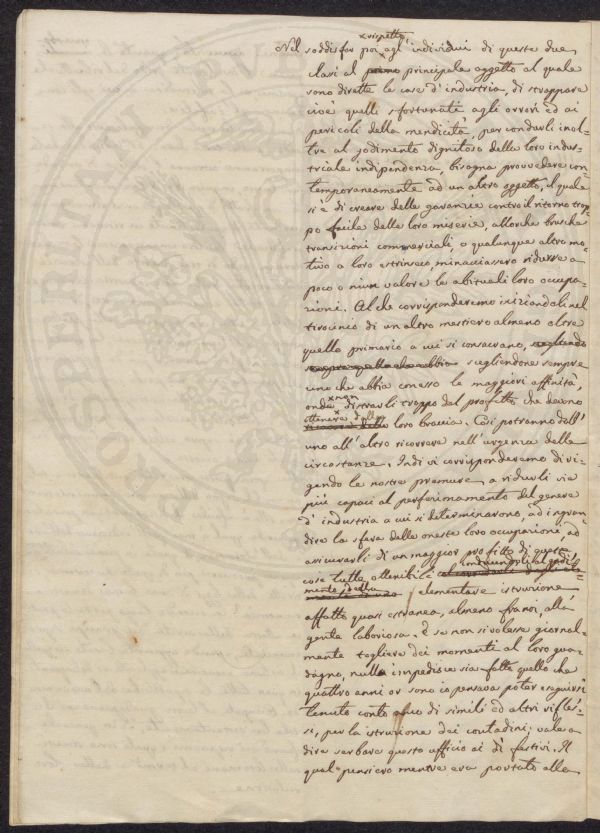 x rispetto
Nel soddisfar poi x agl' individui di queste due
clasi al primo principale oggetto al quale
sono dirette le case d'industria, di strappare
cioè quelli sfortunati agli orrori ed ai
pericoli della mendicità, per condurli inol=
tre al godimento dignitoso della loro indus=
triale indipendenza, bisogna provvedere con=
temporaneamente ad un altro oggetto, il quale
si è di creare delle garanzie contro il ritorno trop=
po facile delle loro miserie, allorche brusche
transizioni commerciali, o qualunque altro mo=
tivo a loro estrinseco, minacciassero ridurre a
poco o niun valore le abituali loro occupa=
zioni. Al che corrisponderemo iniziandoli nel
tirocinio di un altro mestiero almeno oltre
quello primario a cui si consacrano, scegliendo
sempre quello che abbia scegliendone sempre
uno che abbia con esso la maggiori affinità,
onde x non distrarli troppo dal profitto che devono
ottenere dalle loro braccia. Così potranno dall'
uno all' altro ricorrere nell' urgenza delle
circostanze. Indi vi corrisponderemo diri=
gendo le nostre premure a ridurli vie
più capaci al perfezionamento del genere
d' industria a cui si determinarono, ad ingran=
dire la sfera delle oneste loro occupazione, ad
assicurarli di un maggior profitto di queste
cose tutte ottenibili
elementare istruzione
affatto quasi estranea, almeno fra noi, alla
gente laboriosa. E se non si volesse giornal=
mente togliere dei momenti al loro gua=
dagno, nulla impedisce sia fatto quello che
quattro anni or sono io pensava poter eseguirsi
tenuto conto di simili ed altri rifles=
si, per la istruzione dei contadini; vale a
dire serbare questo ufficio ai dì festivi. Il
qual pensiero mentre era portato alla